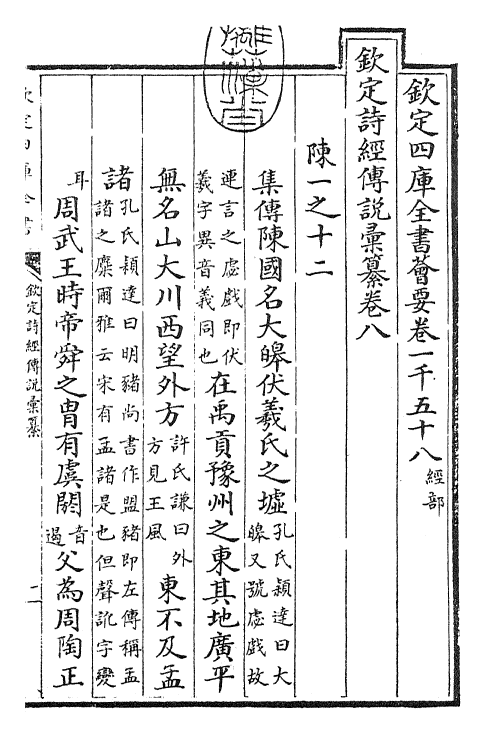 欽定四庫全書薈要卷一千五十八經部
欽定詩經傳說彙纂卷八
陳一之十二
集傳陳國名大皥伏羲氏之墟孔氏穎達曰大皥又號虙戲故
連言之虙戲即伏羲字異音義同也在禹貢豫州之東其地廣平
無名山大川西望外方許氏謙曰外方見王風東不及孟
諸孔氏穎達曰明豬尚書作盟豬即左傳稱孟諸之麋爾雅云宋有孟諸是也但聲訛字變
耳周武王時帝舜之胄有虞閼音遏父為周陶正
欽定四庫全書
欽定詩經傳說彙纂